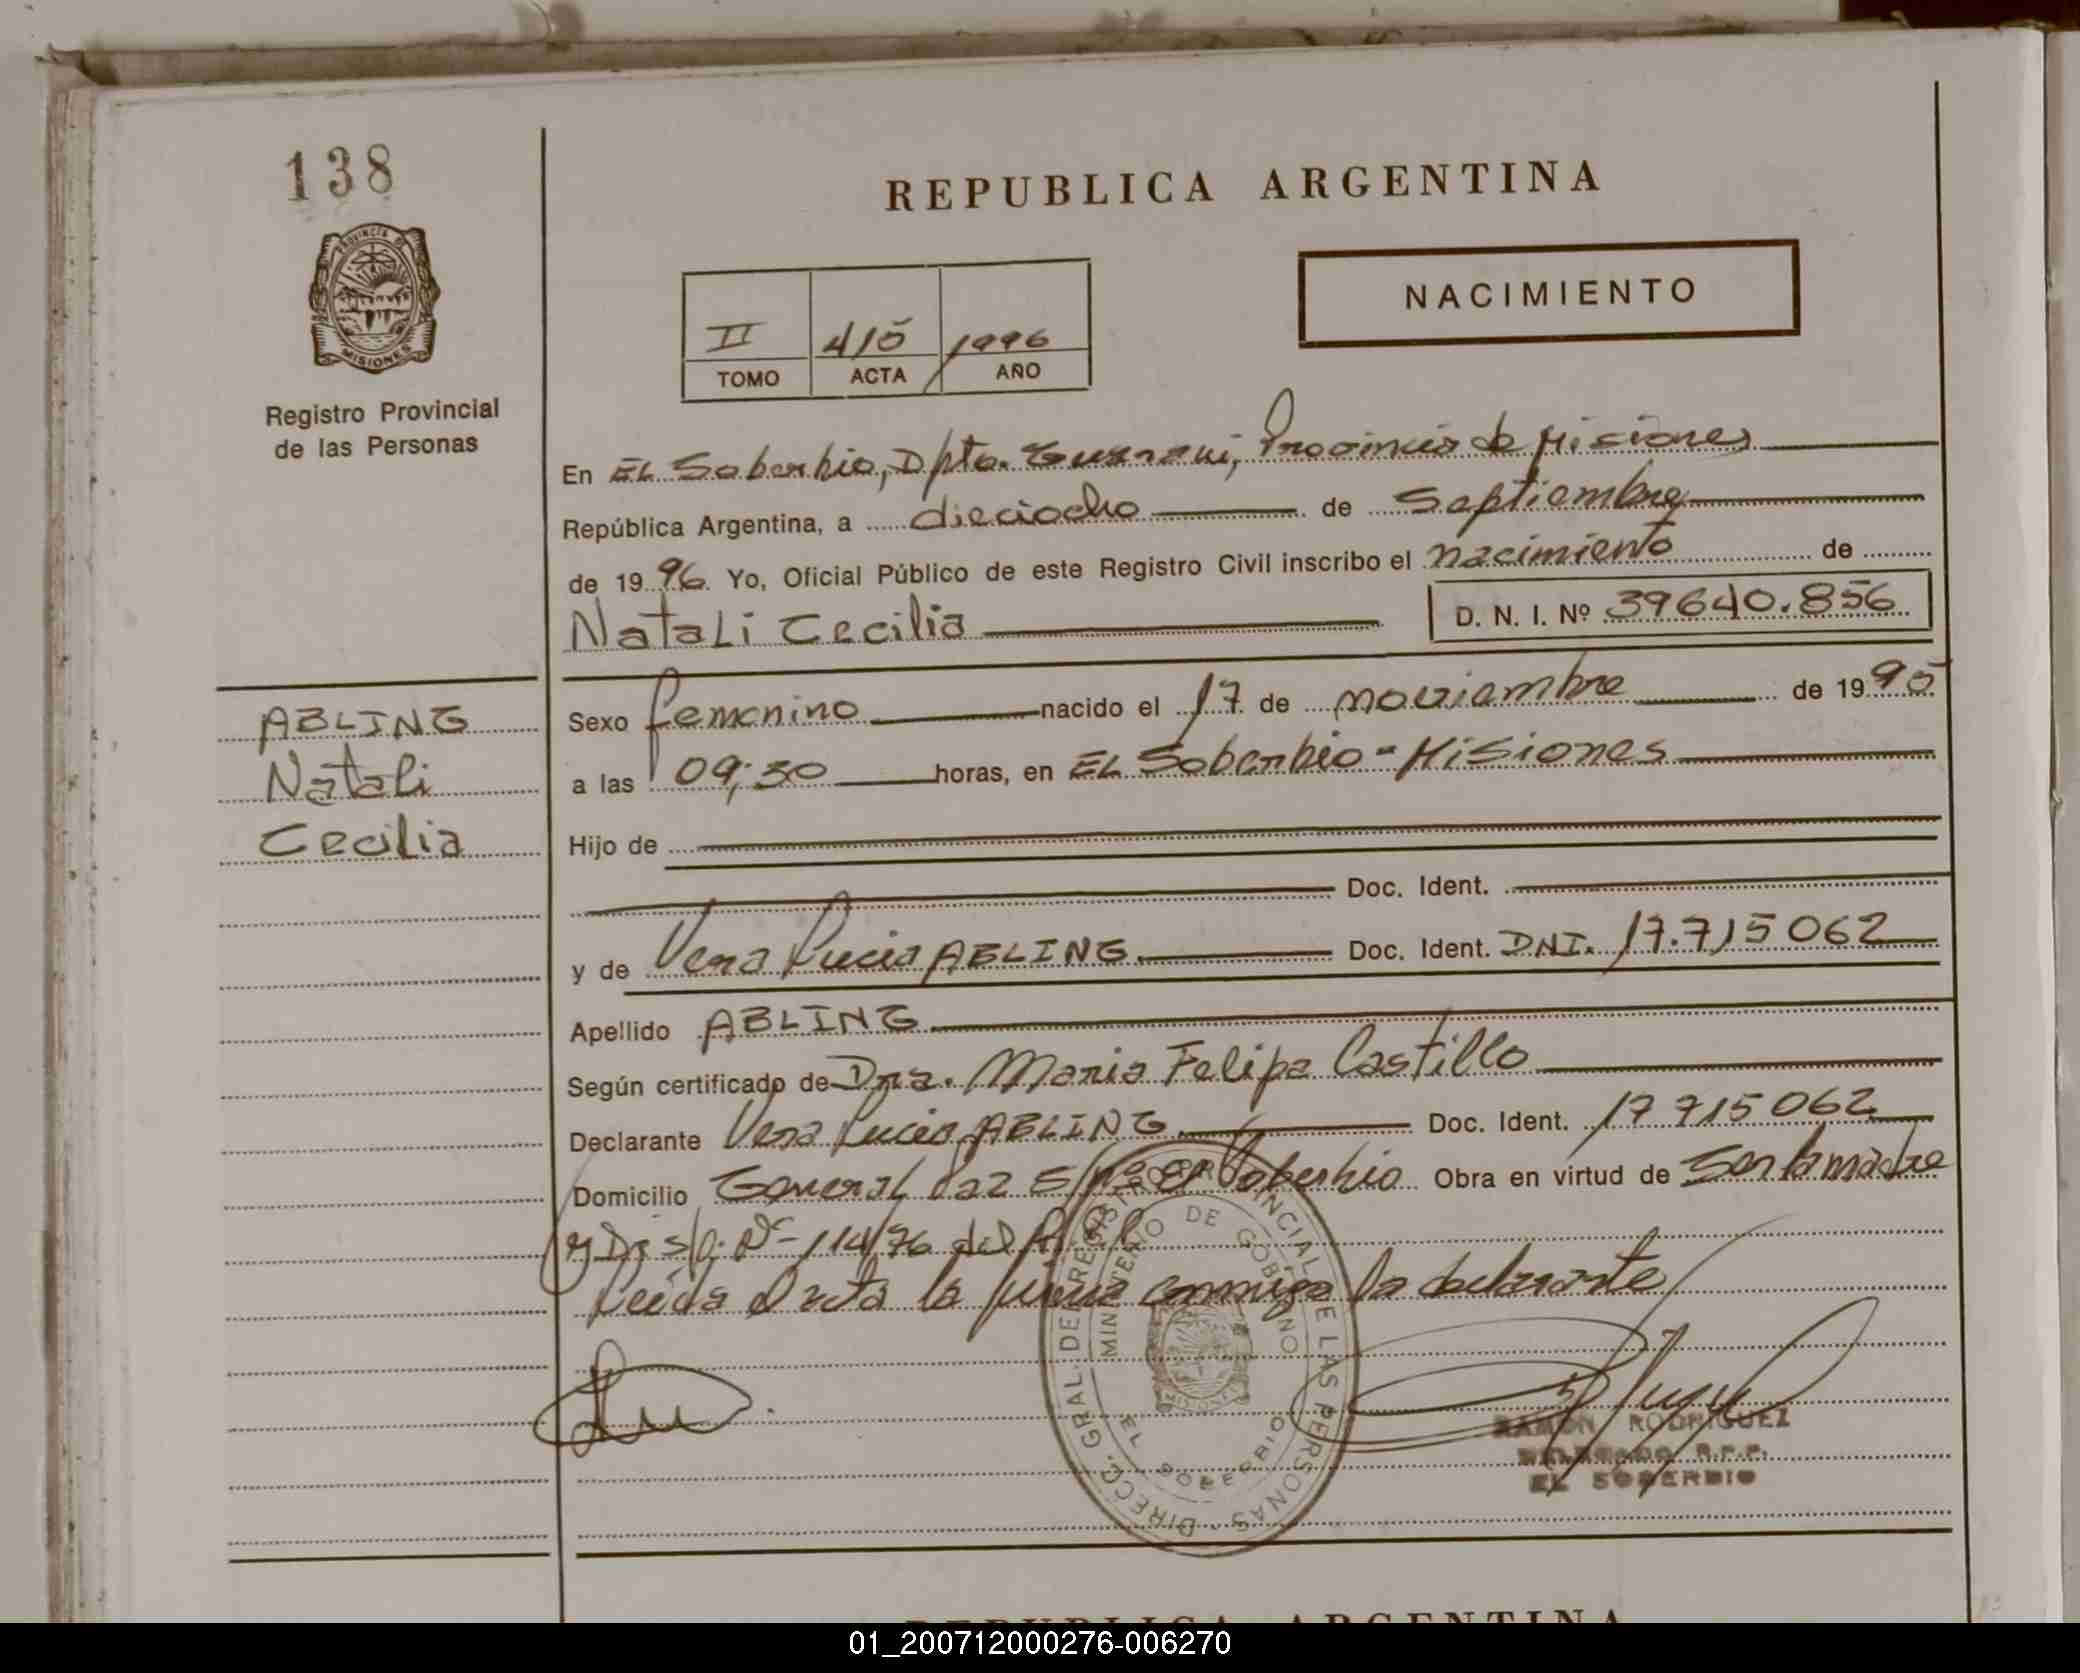 138
REPUBLICA ARGENTINA
PROVINCIA DE
MISIONES
NACIMIENTO
II 415 1996
TOMO ACTA AÑO
Registro Provincial
de las Personas
En EL Soberbio, Dpto. Guarani, Provincia de Misiones
República Argentina, a dieciocho de Septiembre
de 1996. Yo, Oficial Público de este Registro Civil inscribo el nacimiento de
Natali Cecilia D. N. I. Nº 39640.856
ABLING
Natali
Cecilia
Sexo femenino nacido el 17 de noviembre de 1995
a las 09;30 horas, en EL Soberbio - Misiones
Hijo de
Doc. Ident.
y de Vera Lucia ABLING Doc. Ident. DNI. 17.715062
Apellido ABLING
Según certificado de Dra. Maria Felipa Castillo
Declarante Vera Lucia ABLING Doc. Ident. 17715062
Domicilio General Paz S/nº El Soberbio Obra en virtud de Ser la madre
y Disp. Nº 114/76 del R.P.P.
Leída el acta la firma conmigo la declarante
DIRECC. GRAL. DE REGISTRO PROVINCIAL DE LAS PERSONAS
MINISTERIO DE GOBIERNO
EL SOBERBIO
RAMON RODRIGUEZ
DELEGADO R.P.P.
EL SOBERBIO
REPUBLICA ARGENTINA
01_200712000276-006270